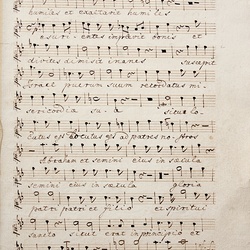 humiles et exaltavit humiles
esurientes implevit bonis et
divites dimisit inanes suscepit
Israel puerum suum recordatus mi
sericordia sua sicut lo
cutus est ad patres nostros
Abraham et semini eius in sæcula
semini eius in sæcula gloria
patri patri et filio et spiritui
sancto sicut erat in principio et